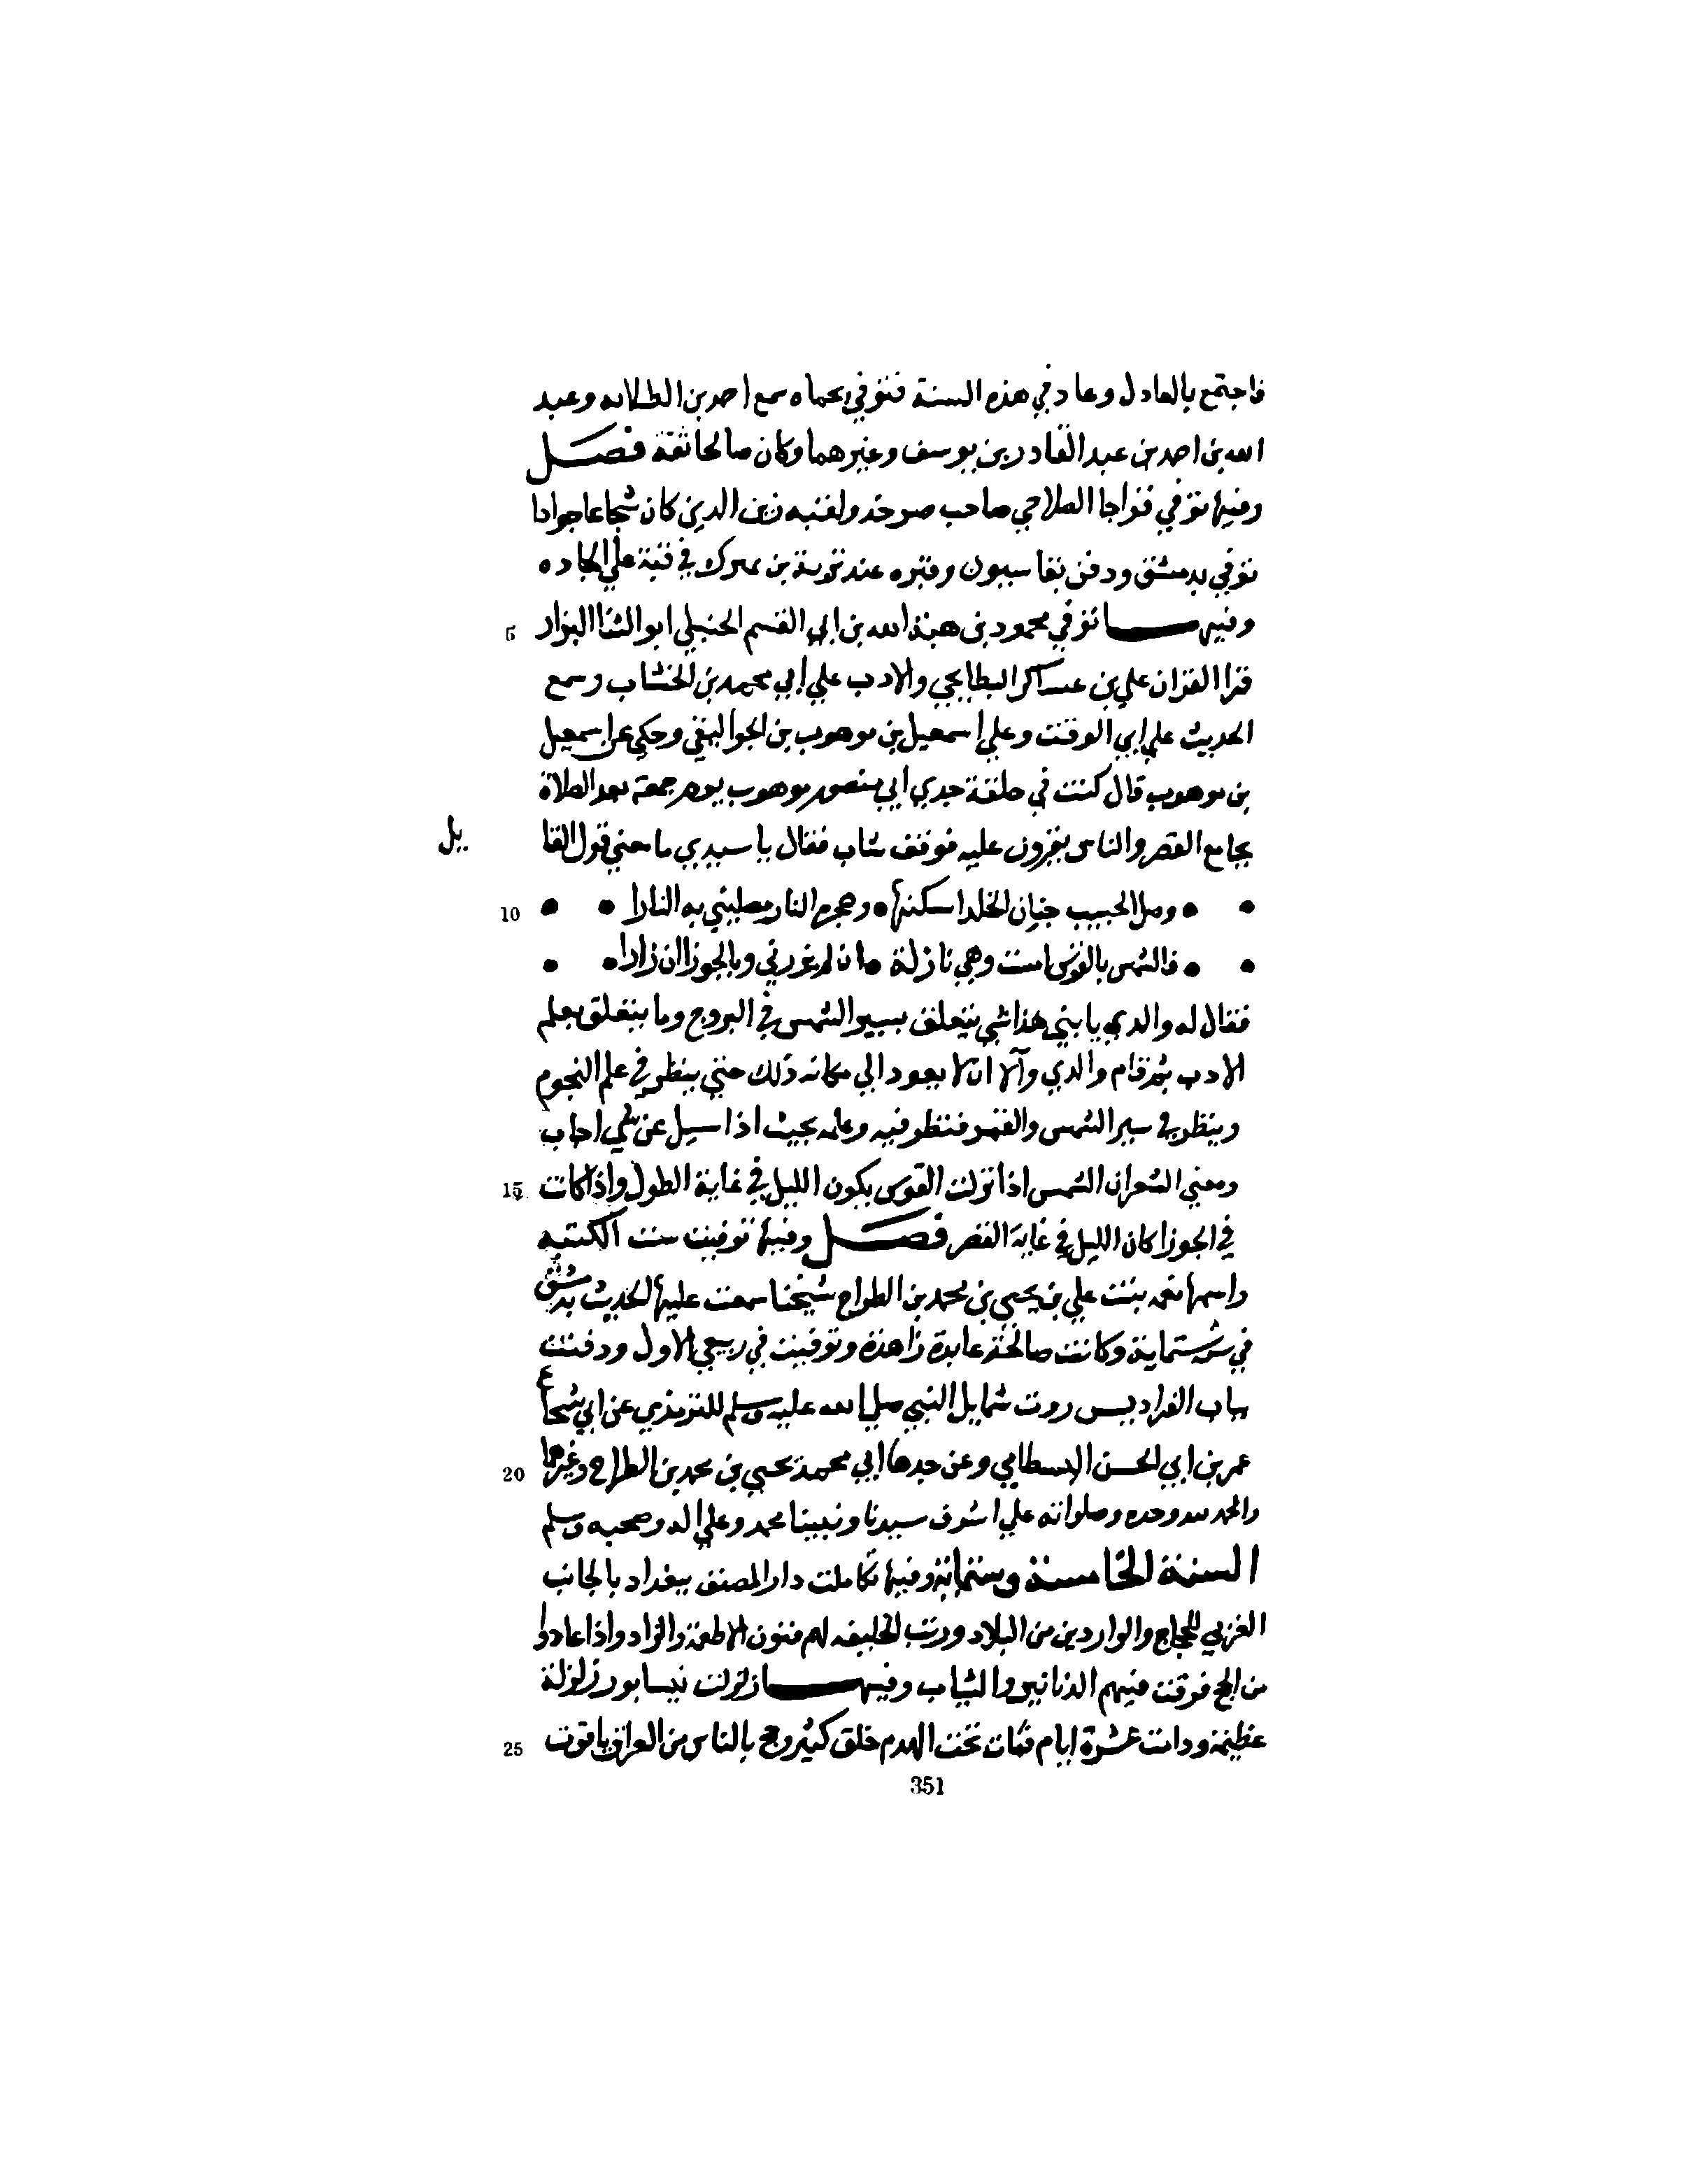 فاجتمع بالعادل وعاد في هذه السنة فتوفي بحماه سمع احمد بن الطلايه وعبد
الله بن احمد بن عبد القادر بن يوسف وغيرهما وكان صالحا ثقة فصل
وفيها توفي قراجا الصلاحي صاحب صرخد ولقبه زين الدين كان شجاعا جوادا
توفي بدمشق ودفن بقاسيون وقبره عند تربة بن تميرك في قبة علي الجاده
وفيها توفي محمود بن هبة الله بن ابي القسم الحنبلي ابو الثنا البزار 5
قرا القران علي بن عساكر البطايحي والادب علي ابي محمد بن الخشاب وسمع
الحديث علي ابي الوقت وعلي اسمعيل بن موهوب بن الجواليقي وحكي عن اسمعيل
بن موهوب قال كنت في حلقة جدي ابي منصور موهوب يوم جمعة بعد الصلاة
بجامع القصر والناس يقرون عليه فوقف شاب فقال يا سيدي ما معني قول القا يل
• • وصل الحبيب جنان الخلد اسكنها • وهجره النار يصليني به النارا • • 10
• • فالشمس بالقوس امست وهي نازلة • ان لم يزرني وبالجوزا ان زارا • •
فقال له والدي يا بني هذا شي يتعلق بسير الشمس في البروج وما يتعلق بعلم
الادب ثم قام والدي وآلا ان لا يعود الي مكانه ذلك حتي ينظر في علم النجوم
وينظر في سير الشمس والقمر فنظر فيه وعلمه بحيث اذا سيل عن شي اجاب
ومعني الشعر ان الشمس اذا نزلت القوس يكون الليل في غاية الطول واذا كانت 15
في الجوزا كان الليل في غاية القصر فصل وفيها توفيت ست الكتبه
واسمها نعمه بنت علي بن يحيي بن محمد بن الطراح شيختنا سمعت عليها الحديث بدمشق
في سنة ستماية وكانت صالحة عابدة زاهدة وتوفيت في ربيع الاول ودفنت
بباب الفراديس روت شمايل النبي صلي الله عليه وسلم للترمذي عن ابي شجاع
عمر بن ابي الحسن البسطامي وعن جدها ابي محمد يحيي بن محمد بن الطراح وغيرهما 20
والحمد لله وحده وصلواته علي اشرف سيدنا ونبينا محمد وعلي اله وصحبه وسلم
السنة الخامسة وستمائة وفيها تكاملت دار المصنف ببغداد بالجانب
الغربي للحجاج والواردين من البلاد ورتب الخليفه لهم فنون الاطعمة والزاد واذا عادوا
من الحج فرقت فيهم الدنانير والثياب وفيها زلزلت نيسابور زلزلة
عظيمة ودامت عشرة ايام فمات تحت الهدم خلق كثير وحج بالناس من العراق ياقوت 25
351